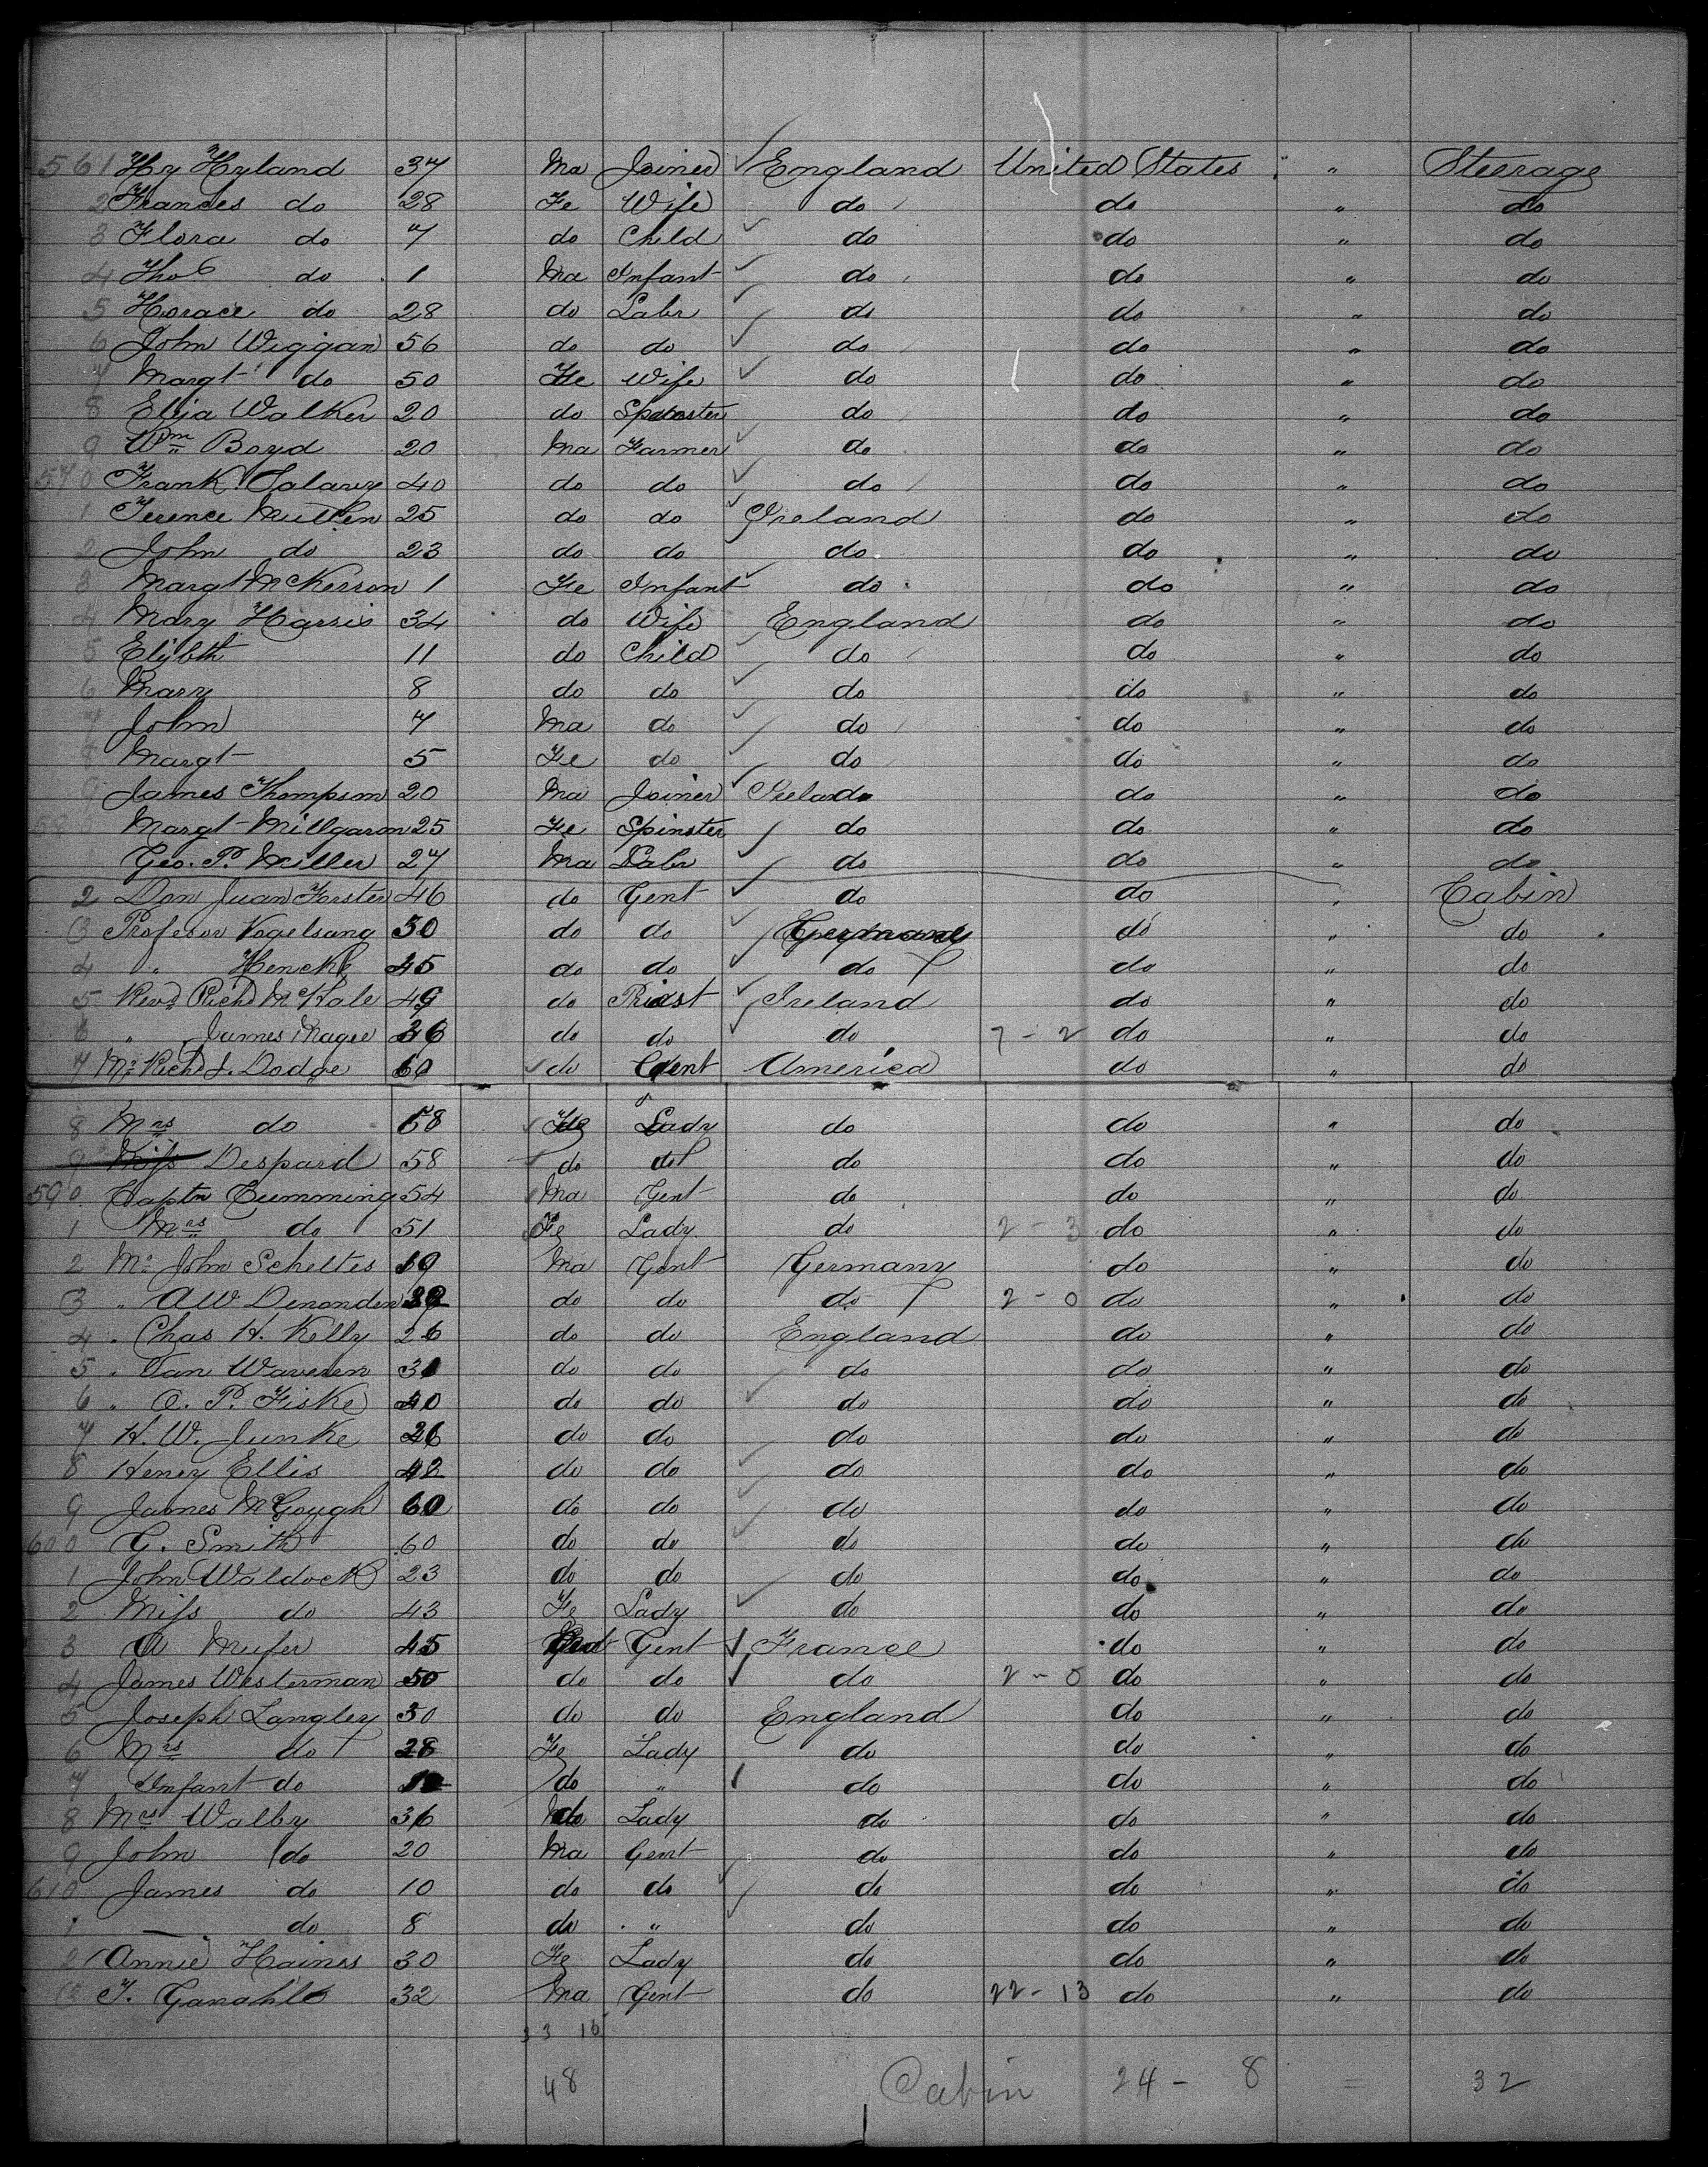 561 Hy Hyland 37 Ma Joiner England United States " Steerage
2 Frances do 28 Fe Wife do do " do
3 Flora do 7 do Child do do " do
4 Thos do 1 Ma Infant do do " do
5 Horace do 28 do Labr do do " do
6 John Wiggan 56 do do do do " do
7 Margt do 50 Fe Wife do do " do
8 Eliza Walker 20 do Spinster do do " do
9 Wm Boyd 20 Ma Farmer do do " do
570 Frank 40 do do do do " do
1 Terence Mullen 25 do do Ireland do " do
2 John do 23 do do do do " do
3 Margt McKerron 1 Fe Infant do do " do
4 Mary Harris 34 do Wife England do " do
5 Elizbth 11 do Child do do " do
6 Mary 8 do do do do " do
7 John 7 Ma do do do " do
8 Margt 5 Fe do do do " do
9 James Thompson 20 Ma Joiner Ireland do " do
58 Margt Millgaron 25 Fe Spinster do do " do
Geo. P. Miller 27 Ma Labr do do " do
2 Don Juan Forster 46 do Gent do do " Cabin
3 Profesor Vogelsang 50 do do Germany do " do
4 " Hencke 45 do do do do " do
5 Revd Richd McHale 49 do Priest Ireland do " do
6 " James Magee 36 do do do 7 - 2 do " do
7 Mr Richd J. Dodge 60 do Gent America do " do
8 Mrs do 58 Fe Lady do do " do
9 Miss Despard 58 do do do do " do
590 Captn Cumming 54 Ma Gent do do " do
1 Mrs do 51 Fe Lady do 2 - 3 do " do
2 Mr John Scheltes Ma Gent Germany do " do
3 " A W Denonden do do do 2 - 0 do " do
4 " Chas H. Kelly 26 do do England do " do
5 " Van Waveren 31 do do do do " do
6 " A. P. Fiske 40 do do do do " do
7 H. W. Junke 26 do do do do " do
8 Henry Ellis 42 do do do do " do
9 James McGough 60 do do do do " do
600 G. Smith 60 do do do do " do
1 John Waldock 23 do do do do " do
2 Miss do 43 Fe Lady do do " do
3 A Mufer 45 Gent France do " do
4 James Westerman 50 do do do 2 - 0 do " do
5 Joseph Langley 50 do do England do " do
6 Mrs do 28 Fe Lady do do " do
7 Infant do do " do do " do
8 Mrs Walby 36 do Lady do do " do
9 John do 20 Ma Gent do do " do
610 James do 10 do do do do " do
1 — do 8 do " do do " do
2 Annie Haines 30 Fe Lady do do " do
13 T. Ganahl 32 Ma Gent do 22 - 13 do " do
33 15
48 Cabin 24 - 8 = 32